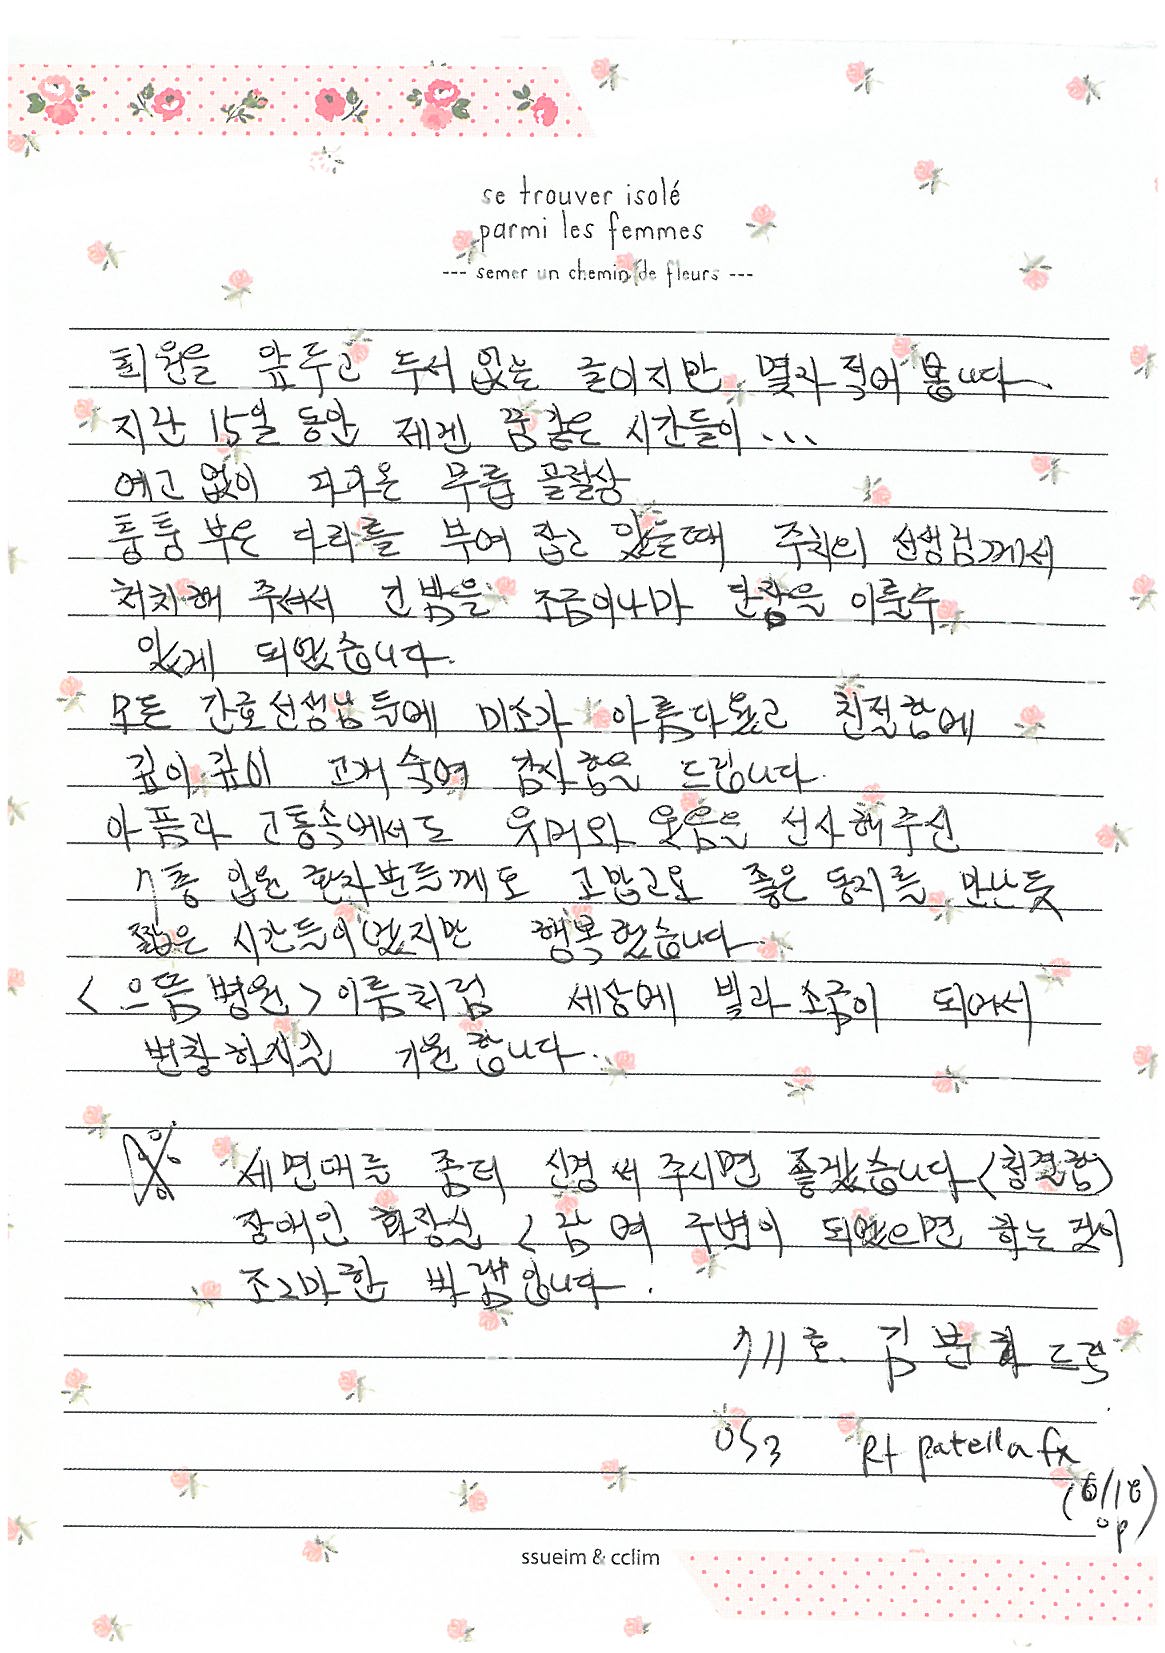 se trouver isolé
parmi les femmes
--- semer un chemin de fleurs ---
퇴원을 앞두고 두서 없는 글이지만 몇자 적어 봅니다
지난 15일 동안 제겐 꿈같은 시간들이...
예고 없이 다가온 무릎 골절상
퉁퉁 부은 다리를 부여 잡고 있을때 주치의 선생님께서
처치해 주셔서 긴 밤을 조금이나마 단잠을 이룰수
있게 되었습니다.
모든 간호선생님들에 미소가 아름다웠고 친절함에
깊이 깊이 고개 숙여 감사함을 드립니다.
아픔과 고통속에서도 유머와 웃음을 선사해주신
7층 입원 환자분들께도 고맙고요 좋은 동지를 만난듯
짧은 시간들이였지만 행복했습니다.
<으뜸병원> 이름처럼 세상에 빛과 소금이 되어서
번창하시길 기원합니다.
※ 세면대를 좀더 신경써 주시면 좋겠습니다 (청결함)
장애인 화장실 < 주변이 되었으면 하는 것이
조그마한 바램입니다.
711호. 김 드림
OS3 Rt patella fx
(6/18
op)
ssueim & cclim